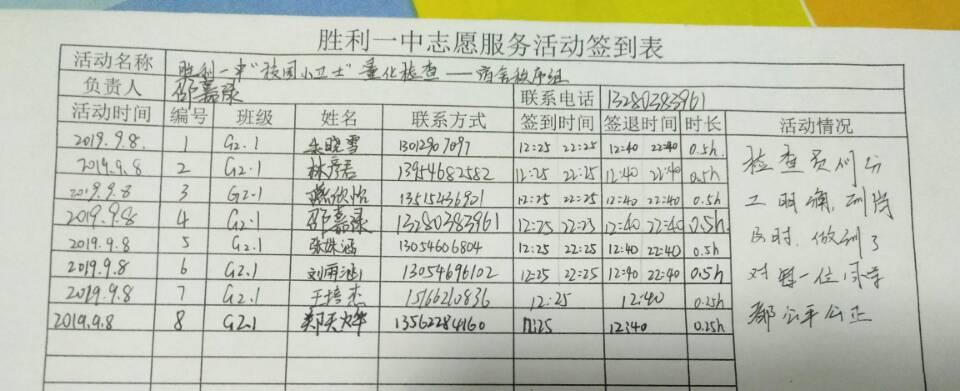 胜利一中志愿服务活动签到表
活动名称 胜利一中"校园小卫士"量化检查——宿舍秩序组
负责人 邵嘉禄 联系电话 13280383961
活动时间 编号 班级 姓名 联系方式 签到时间 签退时间 时长 活动情况
2019.9.8. 1 G2.1 朱晓雪 13012907097 12:25 22:25 12:40 22:40 0.5h
2019.9.8 2 G2.1 林彦君 13954682582 12:25 22:25 12:40 22:40 0.5h
2019.9.8 3 G2.1 欣怡 12:25 22:25 12:40 22:40 0.5h
2019.9.8 4 G2.1 邵嘉禄 13280383961 12:25 22:25 12:40 22:40 0.5h
2019.9.8 5 G2.1 张姝涵 13054606804 12:25 22:25 12:40 22:40 0.5h
2019.9.8 6 G2.1 13054696102 12:25 22:25 12:40 22:40 0.5h
2019.9.8 7 G2.1 于培杰 15166210836 12:25 12:40 0.25h
2019.9.8 8 G2.1 郑天烨 13562284160 12:25 12:40 0.25h
检查员们分
工明确,到岗
及时,做到了
对每一位同学
都公平公正